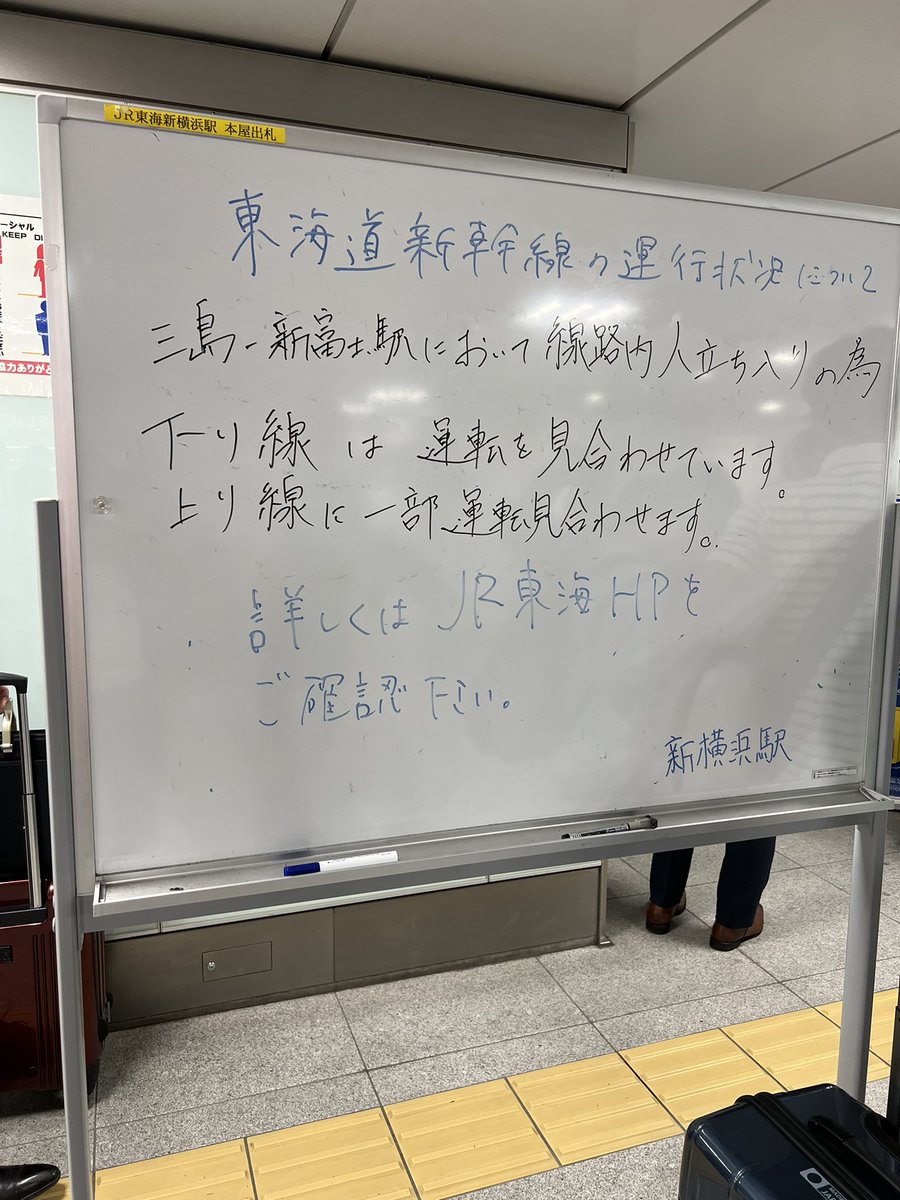 JR東海新横浜駅 本屋出札
東海道新幹線の運行状況について
三島-新富士駅において線路内人立ち入りの為
下り線は運転を見合わせています。
上り線に一部運転見合わせます。
詳しくはJR東海HPを
ご確認下さい。
新横浜駅
ーシャル
KEEP DI
協力ありがと